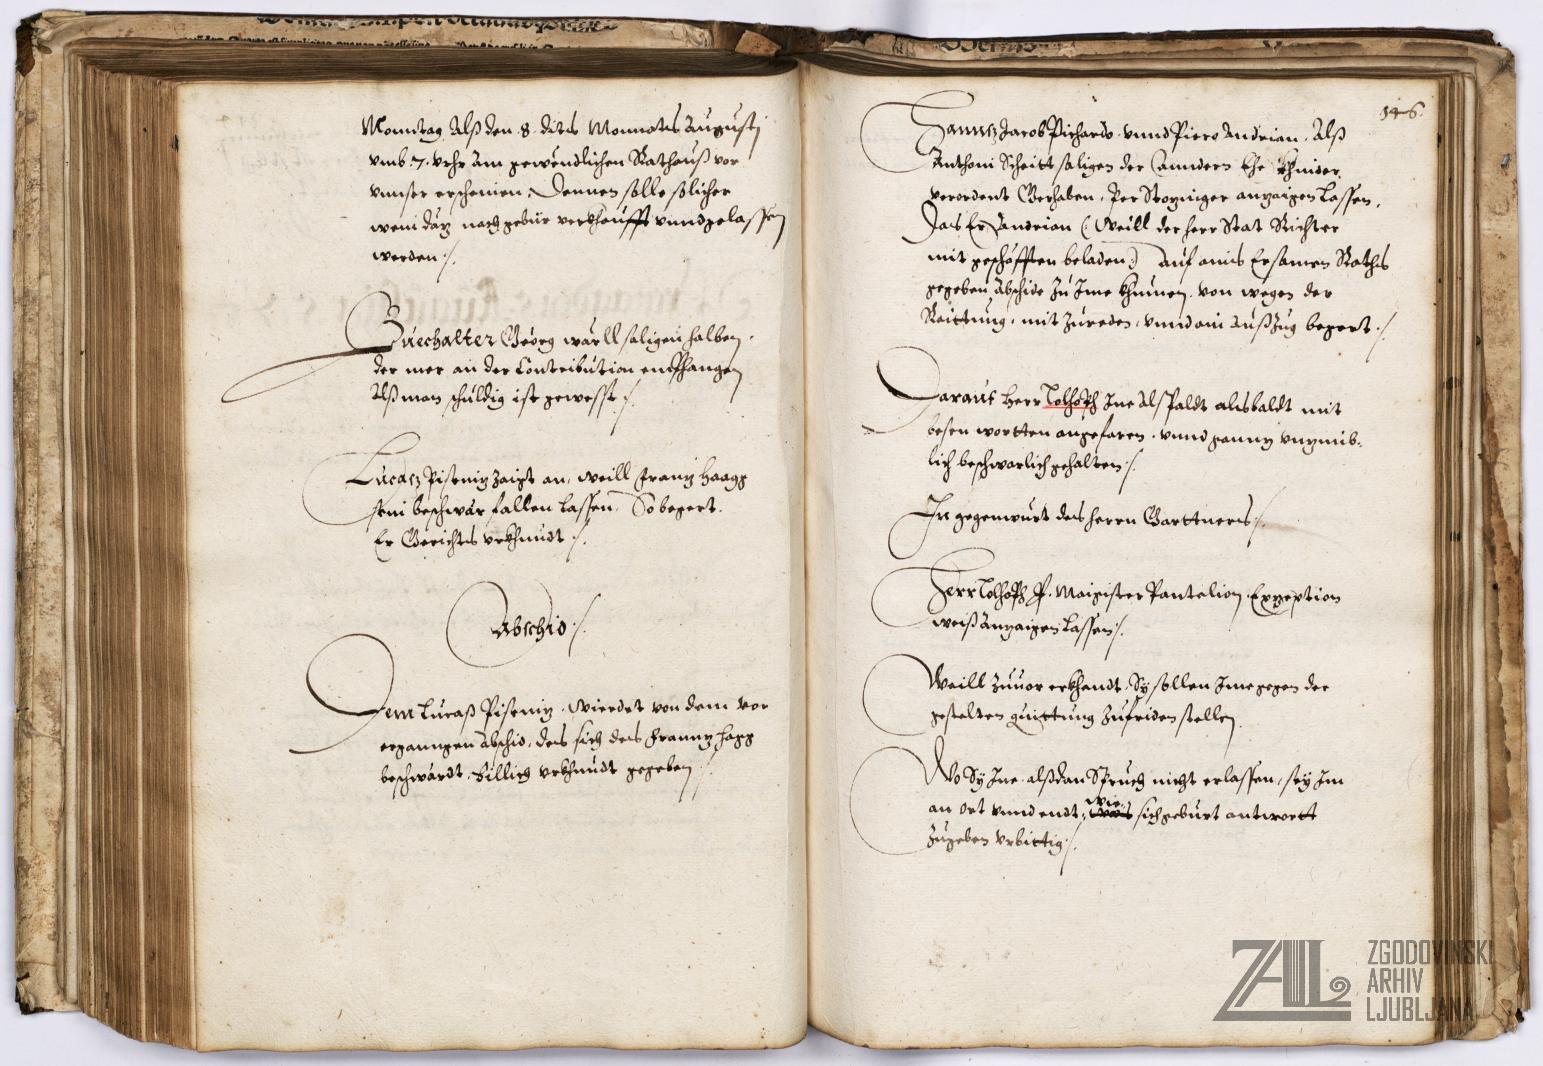 Monntag Alß den 8 dits Monnats Augusti
vmb 7 vrhr Am gewendlichen Rathauß vor
vnnser erscheinen. Dennen solle solicher
wein
nach gebür verkhaufft vnnd gelassen
werden /.
Buechalter Georg
saligen halben
der mer an der Contribution emphangen
Alß man schuldig ist gewesst /.
Lucasz Pisteniz zaigt an, weill Franz Haagg
sein beschwär fallen lassen, So begert
Er Gerichts vrkhundt /.
Abschid /.
Dem Lucasß Pisteniz wierdet von dem vor
erganngen Abschid, des sich des Frannz Hagg
beschwärdt billich vrkhundt gegeben /.
146.
Hannsz Jacob Pichardo vnnd Piero Andrian Alß
Anthoni
saligen der Anndern Ehe khinder
verordent Gerhaben, Per Stoyniger anzaigen Lassen,
Das Er Andrian (: Weill der herr Stat Richter
mit geschäfften beladen :) auf ains Ersamen Raths
gegeben Abschide Zu Ime khumen von wegen der
Raittung, mit Zureden, vnnd ain Außzug begert ./
Darauf Herr Tolhopf Ine Als Paldt alsbaldt mit
besen wortten angefaren, vnnd gannz vnzimb-
lich beschwarlich gehalten /.
In gegenwurt des herrn Garttners /.
Herr Tolhopf P. Maigister Pantelion Exzeption
weiß Anzaigen Lassen /.
Weill Zuuor erkhandt, Sy sollen Ime gegen der
gestelten quittung Zufriden stellen
Wo Sy Ine alßdan Spruch nicht erlassen, sey Im
an ort vnnd endt, wie sich geburt antwortt
Zugeben vrbittig /.
ZAL
ZGODOVINSKI
ARHIV
LJUBLJANA